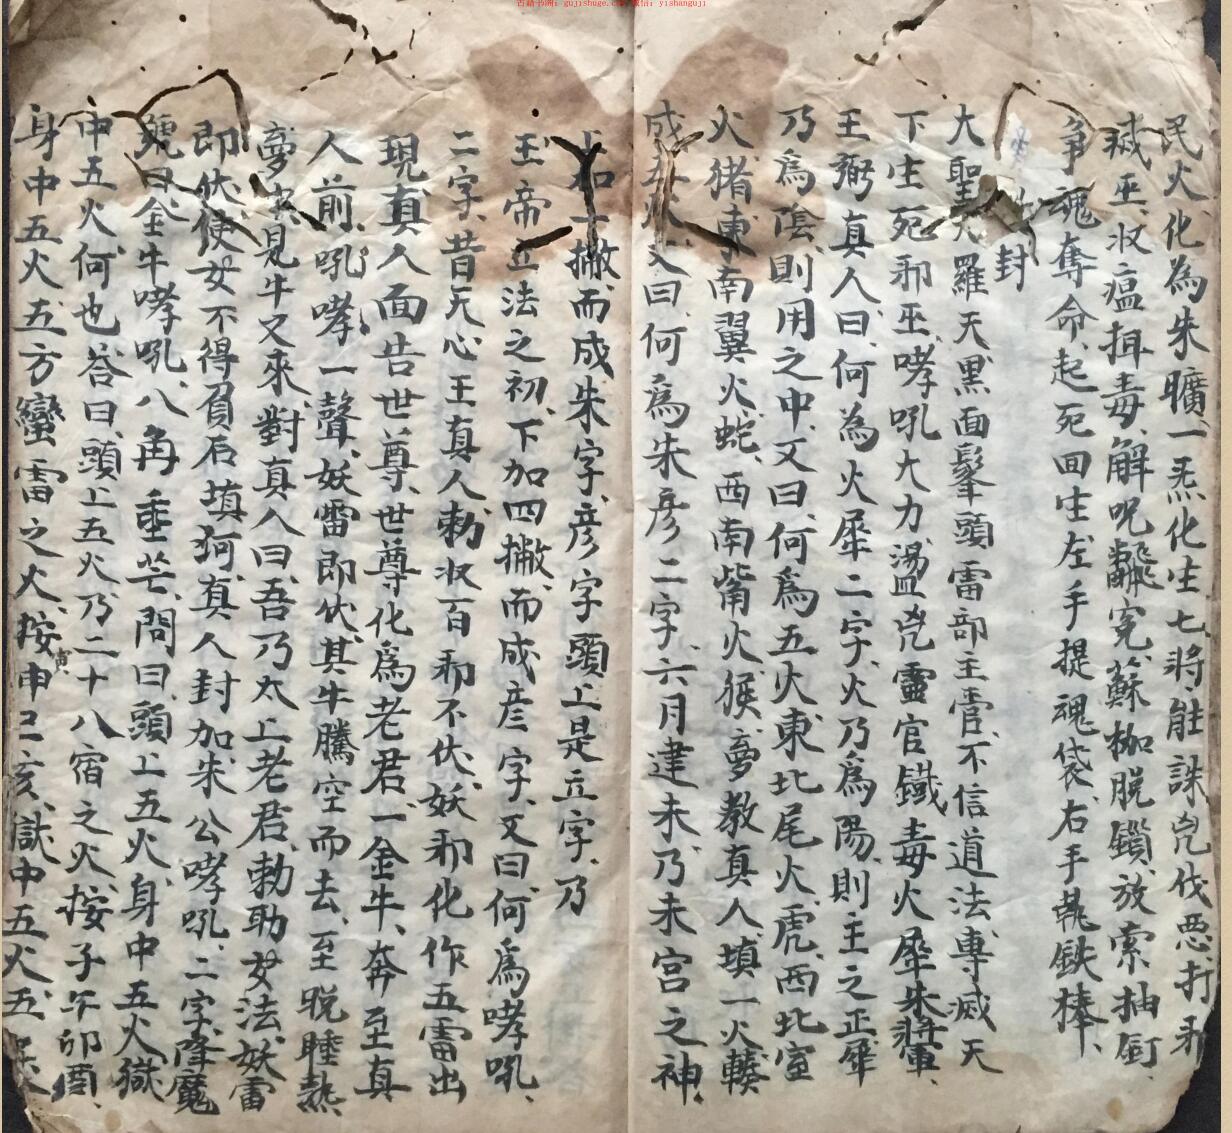 古籍书洲：gujishuge.c 微信：yishanguji
民火化為朱曠、一炁化生七將、能誅兇伐惡、打邪
滅巫、收瘟捐毒、解呪飜冤、蘇枷脱鎖、放索抽釘、
爭魂奪命、起死回生、左手提魂袋、右手執鉄棒、
封
大聖大羅天黑面髼頭雷部主霊、不信道法、專滅天
下生死邪巫、哮吼大力蕩兇靈官鐵毒火犀朱將軍、
王弼真人曰、何為火犀二字、火乃為陽、則主之正犀
乃為陰、則用之中、又曰、何為五火、東北尾火虎、西北室
火猪、東南翼火蛇、西南觜火猴、夢教真人、填一火輳
成五火、又曰、何為朱彦二字、六月建未、乃未宮之神、
十撇、而成朱字、彦字頭上是立字、乃
玉帝立法之初、下加四撇、而成彦字、又曰、何爲哮吼、
二字、昔天心王真人勅收百邪不伏、妖邪化作五雷出
現、真人面告世尊、世尊化爲老君、一金牛、奔至真
人前、吼哮一聲、妖雷即伏、其牛騰空而去、至晚睡熟、
夢中見牛又來、對真人曰、吾乃太上老君、勅助女法、妖雷
即伏使、女不得負石填河、真人封加朱公哮吼、二字、降魔
號曰、金牛哮吼、八角垂芒、問曰、頭上五火、身中五火、獄
中五火、何也、答曰、頭上五火、乃二十八宿之火、按子午卯酉、
身中五火、五方蠻雷之火、按寅申巳亥、獄中五火、五